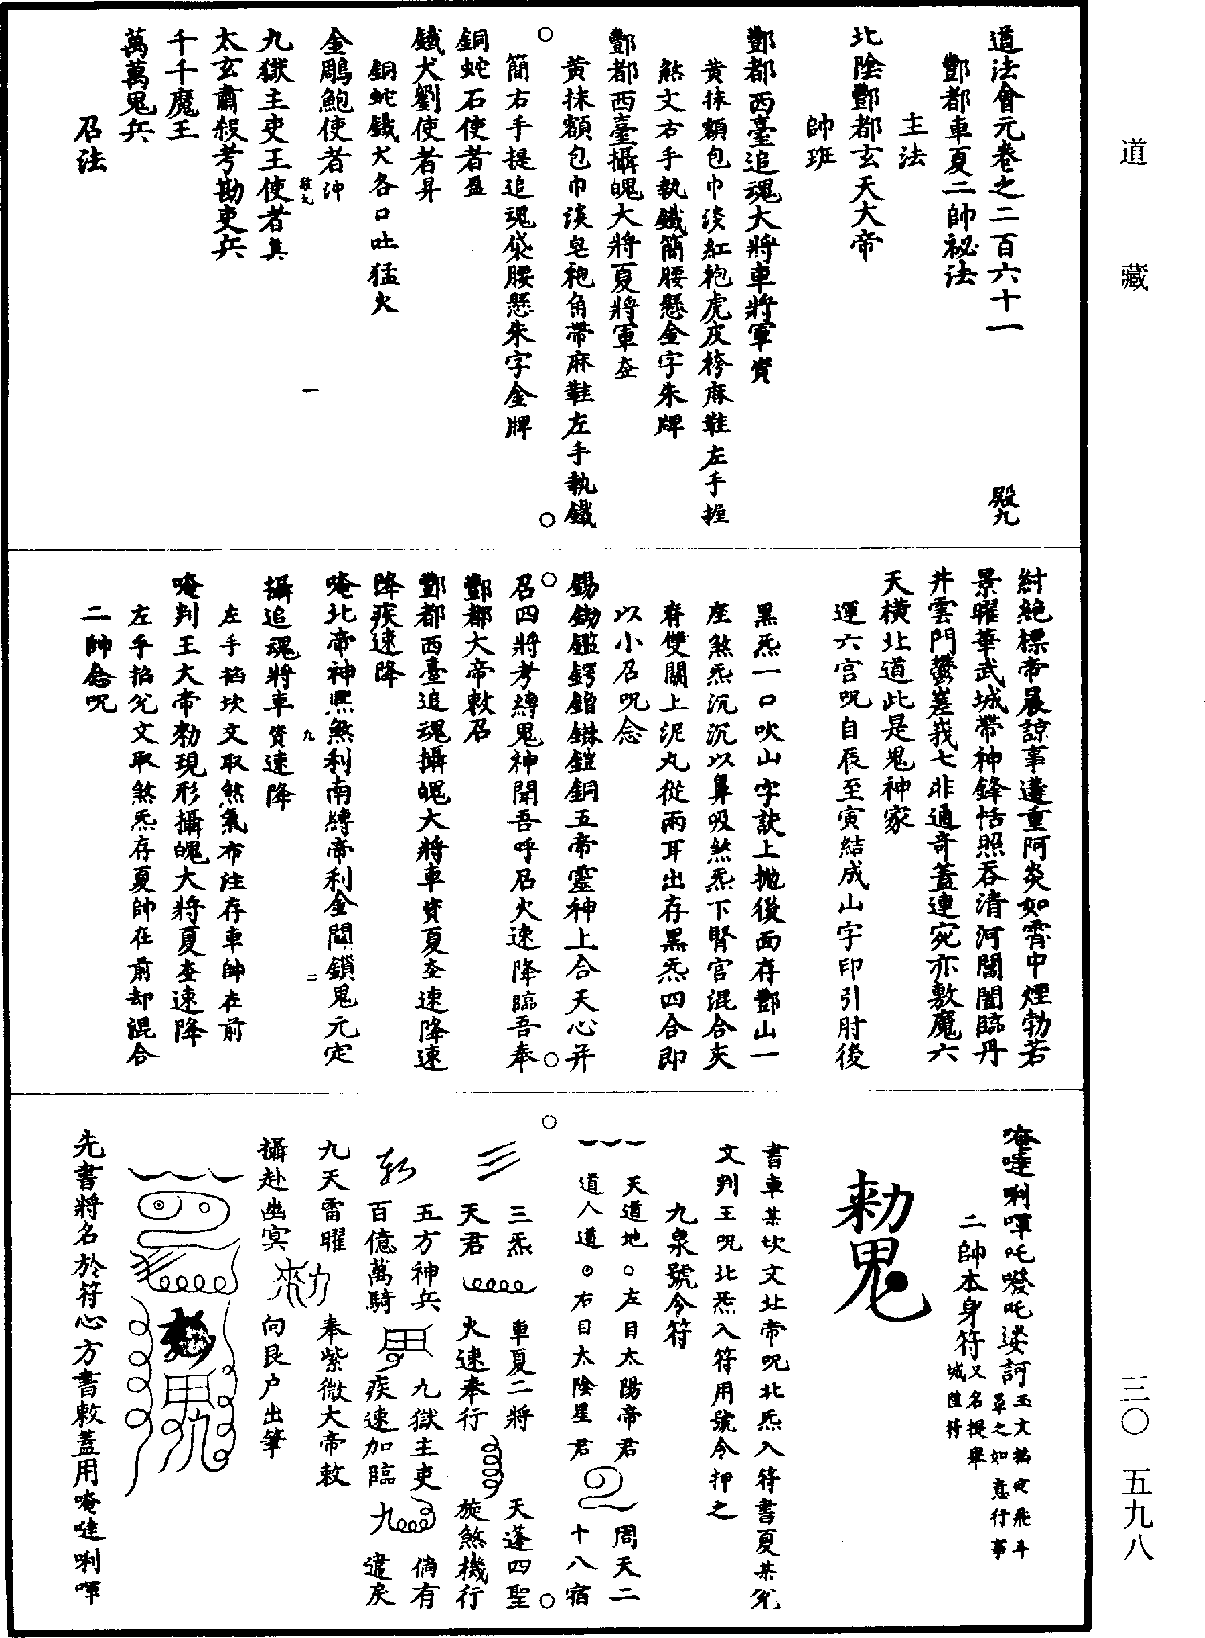 道藏
三〇 五九八
道法會元卷之二百六十一 殿九
酆都車夏二帥祕法
主法
北陰酆都玄天大帝
帥班
酆都西臺追魂大將車將軍資
黃抹額包巾淡紅袍虎皮袴麻鞋左手握
煞文右手執鐵簡腰懸金字朱牌
酆都西臺攝魄大將夏將軍查
黃抹額包巾淡皂袍角帶麻鞋左手執鐵
簡右手提追魂袋腰懸朱字金牌
銅蛇石使者昷
鐵犬劉使者昇
銅蛇鐵犬各口吐猛火
金鵰鮑使者沖
九獄主吏王使者真
太玄肅殺考勘吏兵
千千魔王
萬萬鬼兵
召法
紂絕標帝晨諒事遘重阿炎如霄中煙勃若
景曜華武城帶神鋒恬照吞清河閶闔臨丹
井雲門鬱嵯峩七非通奇蓋連宛亦敷魔六
天橫北道此是鬼神家
運六宫呪自辰至寅結成山字印引肘後
黑炁一口吹山字訣上拋後面存酆山一
座煞炁沉沉以鼻吸煞炁下腎宫混合夾
脊雙關上泥丸從兩耳出存黑炁四合即
以小召呪念
五帝靈神上合天心并
召四將考縛鬼神聞吾呼召火速降臨吾奉
酆都大帝敕召
酆都西臺追魂攝魄大將車資夏查速降速
降疾速降
唵北帝神黑煞利南縛帝利金關鎖鬼元定
攝追魂將車資速降
左手掐坎文取煞氣布注存車帥在前
唵判王大帝勑現形攝魄大將夏查速降
左手掐兌文取煞炁存夏帥在前却混合
二帥念呪
唵噠唎㖉吒㗶吒娑訶 玉文掐定飛斗罩之如意行事
二帥本身符 又名提舉城隍符
勑鬼
書車某坎文北帝呪北炁入符書夏某兌
文判王呪北炁入符用號令押之
九泉號令符
天道地 左目太陽帝君 周天二
道八道 右目太陰星君 十八宿
三炁 車夏二將 天蓬四聖
天君 火速奉行 旋煞機行
五方神兵 九獄主吏 倘有
百億萬騎 疾速加臨 違戾
九天雷曜 奉紫微大帝敕
攝赴幽冥 向艮户出筆
先書將名於符心方書敕蓋用唵噠唎㖉